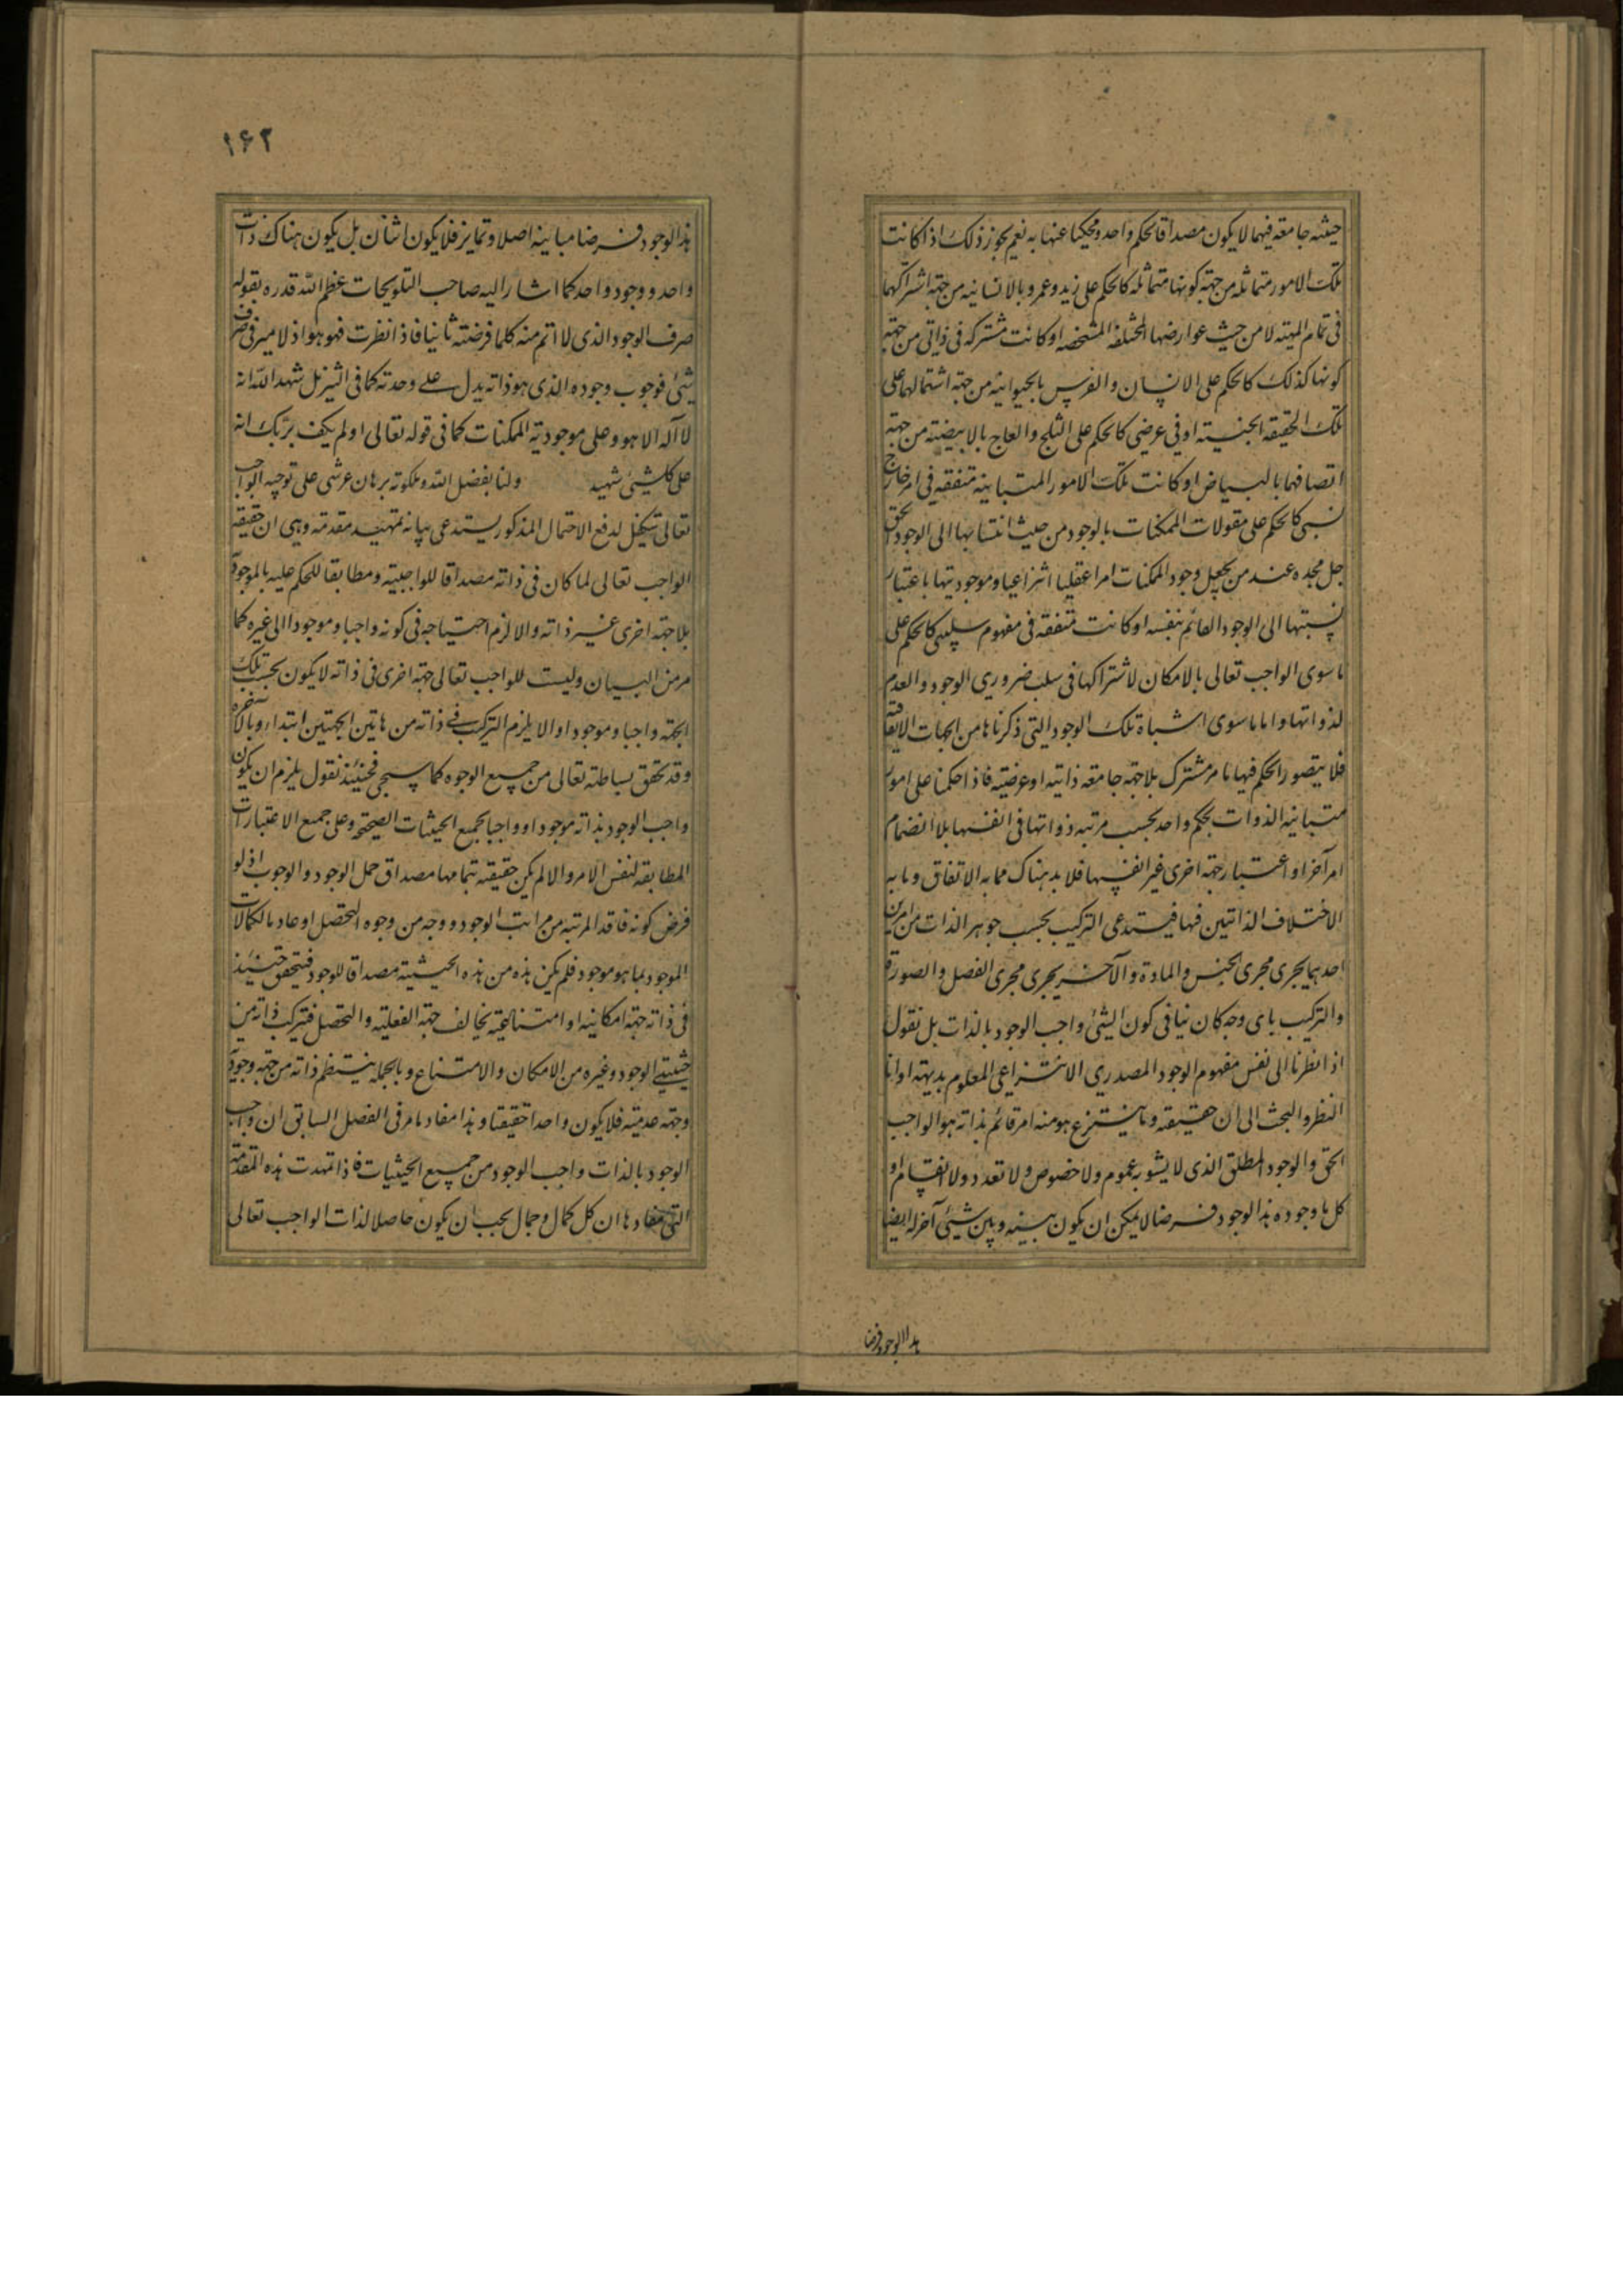 حيثية جامعة فيها لا يكون مصداقا لحكم واحد ومحكيا عنها به نعم يجوز ذلك اذا كانت
تلك الامور متماثلة من جهة كونها متماثلة كالحكم على زيد وعمرو بالانسانية من جهة اشتراكهما
فى تمام المهية لا من حيث عوارضها المختلفة المشخصة او كانت مشتركة فى ذاتى من جهة
كونها كذلك كالحكم على الانسان والفرس بالحيوانية من جهة اشتمالهما على
تلك الحقيقة الجنسية او فى عرضى كالحكم على الثلج والعاج بالابيضية من جهة
اتصافهما بالبياض او كانت تلك الامور المتباينة متفقة فى امر خارج
نسبى كالحكم على مقولات الممكنات بالوجود من حيث انتسابها الى الوجود الحق
جل مجده عند من يجعل وجود الممكنات امرا عقليا انتزاعيا وموجوديتها باعتبار
نسبتها الى الوجود القائم بنفسه او كانت متفقة فى مفهوم سلبى كالحكم على
ما سوى الواجب تعالى بالامكان لاشتراكها فى سلب ضرورى الوجود والعدم
لذواتها واما ما سوى اشباه تلك الوجوه التى ذكرناها من الجهات الاتفاقية
فلا يتصور الحكم فيها بامر مشترك بلا جهة جامعة ذاتية او عرضية فاذا حكمنا على امور
متباينة الذوات بحكم واحد بحسب مرتبة ذواتها فى انفسها بلا انضمام
امر آخر او اعتبار جهة اخرى غير انفسها فلا بد هناك مما به الاتفاق وما به
الاختلاف الذاتيين فيها فيستدعى التركيب بحسب جوهر الذات من امرين
احدهما يجرى مجرى الجنس والمادة والآخر يجرى مجرى الفصل والصورة
والتركيب باى وجه كان ينافى كون الشئ واجب الوجود بالذات بل نقول
اذا نظرنا الى نفس مفهوم الوجود المصدرى الانتزاعى المعلوم بديهة ادانا
النظر والبحث الى ان حقيقته وما ينتزع هو منه امر قائم بذاته هو الواجب
الحق والوجود المطلق الذى لا يشوبه عموم ولا خصوص ولا تعدد ولا انقسام او
كل ما وجوده هذا الوجود فرضا لا يمكن ان يكون بينه وبين شئ آخر له ايضا
هذا الوجود فرضا
۱۶۲
هذا الوجود فرضا مباينة اصلا وتمايز فلا يكون اثنان بل يكون هناك ذات
واحد ووجود واحد كما اشار اليه صاحب التلويحات عظم الله قدره بقوله
صرف الوجود الذى لا اتم منه كلما فرضته ثانيا فاذا نظرت فهو هو اذ لا ميز فى صرف
شئ فوجوب وجوده الذى هو ذاته يدل على وحدته كما فى التنزيل شهد الله انه
لا آله الا هو وعلى موجودته الممكنات كما فى قوله تعالى اولم يكف بربك انه
على كل شئ شهيد ولنا بفضل الله وملكوته برهان عرشى على توحيد الواجب
تعالى يتكفل لدفع الاحتمال المذكور يستدعى بيانه تمهيد مقدمة وهى ان حقيقة
الواجب تعالى لما كان فى ذاته مصداقا للواجبية ومطابقا للحكم عليه بالموجودية
بلا جهة اخرى غير ذاته والا لزم احتياجه فى كونه واجبا وموجودا الى غيره كما
مر من البيان وليست للواجب تعالى جهة اخرى فى ذاته لا يكون بحسب تلك
الجهة واجبا وموجودا والا يلزم التركيب فى ذاته من هاتين الجهتين ابتداء وبالاخرة
وقد تحقق بساطته تعالى من جميع الوجوه كما سيجى فحينئذ نقول يلزم ان يكون
واجب الوجود بذاته موجودا وواجبا بجميع الحيثيات الصحيحة وعلى جميع الاعتبارات
المطابقة لنفس الامر والا لم يكن حقيقته بتمامها مصداق حمل الوجود والوجوب اذ لو
فرض كونه فاقد المرتبة من مراتب الوجود ووجه من وجوه التحصل او عاد بالكمالات
الموجود بما هو موجود فلم يكن هذه من هذه الحيثية مصداقا للوجود فيتحقق حينئذ
فى ذاته جهة امكانية او امتناعية يخالف جهة الفعلية والتحصل فتركب ذاته من
حيثيتى الوجود وغيره من الامكان والامتناع وبالجملة ينتظم ذاته من جهة وجودية
وجهة عدمية فلا يكون واحدا حقيقتا وهذا مفاد ما مر فى الفصل السابق ان واجب
الوجود بالذات واجب الوجود من جميع الحيثيات فاذا تمهدت هذه المقدمة
التى مفادها ان كل كمال وجمال يجب ان يكون حاصلا لذات الواجب تعالى